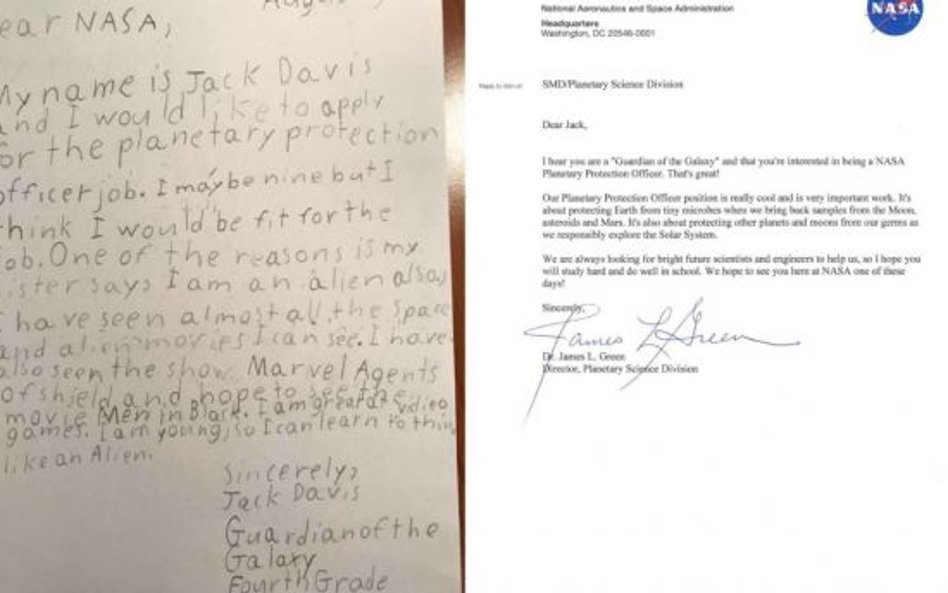 ear NASA,
My name is Jack Davis
and I would like to apply
for the planetary protection
officer job. I may be nine but I
think I would be fit for the
job. One of the reasons is my
sister says I am an alien also,
I have seen almost all the space
and alien movies I can see. I have
also seen the show Marvel Agents
of Shield and hope to see the
movie Men in Black. I am great at video
games. I am young, so I can learn to think
like an Alien.
Sincerely,
Jack Davis
Guardian of the
Galaxy
Fourth Grade
National Aeronautics and Space Administration
Headquarters
Washington, DC 20546-0001
NASA
SMD/Planetary Science Division
Dear Jack,
I hear you are a "Guardian of the Galaxy" and that you're interested in being a NASA
Planetary Protection Officer. That's great!
Our Planetary Protection Officer position is really cool and is very important work. It's
about protecting Earth from tiny microbes when we bring back samples from the Moon,
asteroids and Mars. It's also about protecting other planets and moons from our germs as
we responsibly explore the Solar System.
We are always looking for bright future scientists and engineers to help us, so I hope you
will study hard and do well in school. We hope to see you here at NASA one of these
days!
Sincerely,
James L Green
Dr. James L. Green
Director, Planetary Science Division